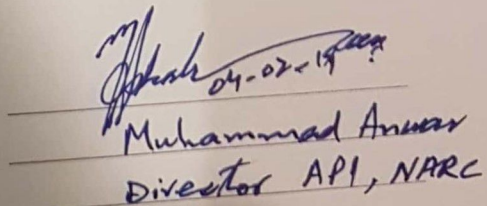 04-02-19
Muhammad Anwar
Director API, NARC